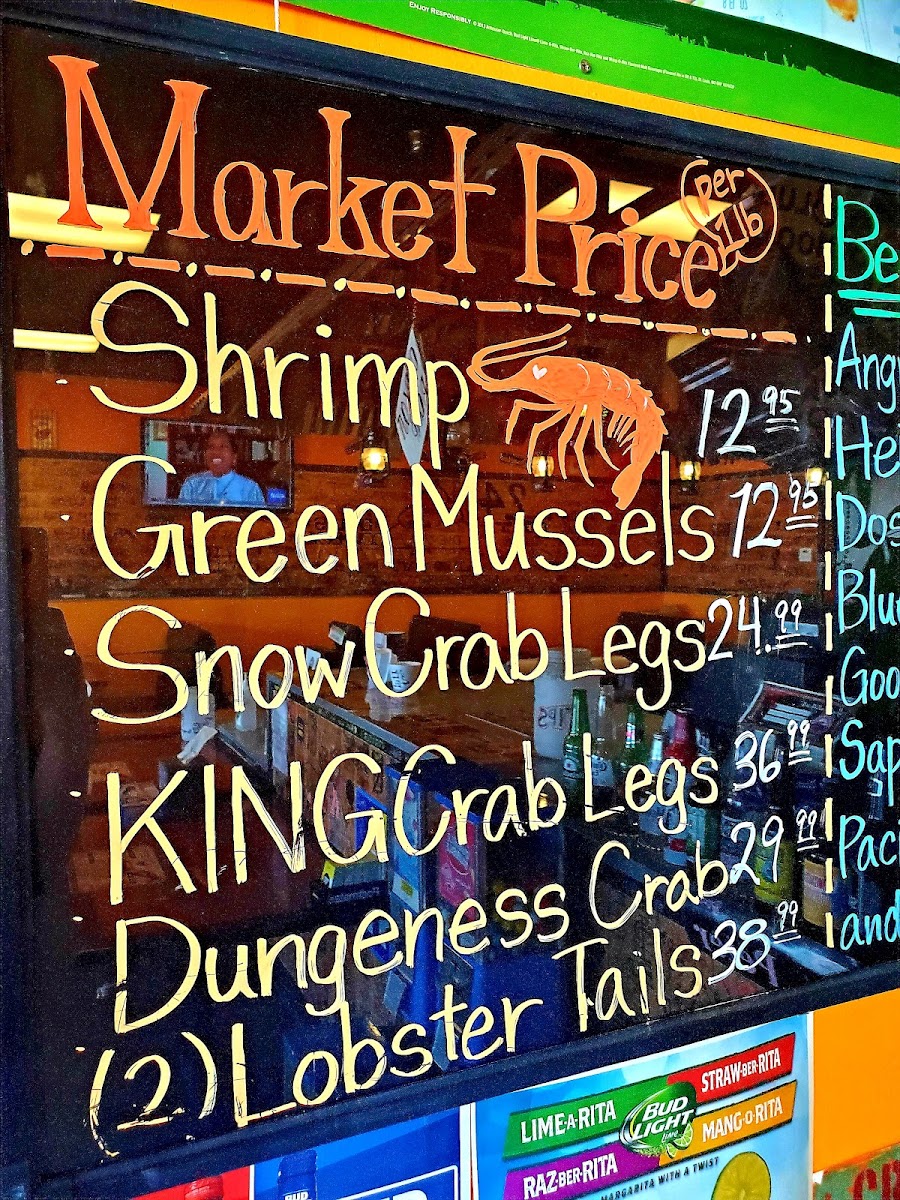 ENJOY RESPONSIBLY
Market Price (per 1lb)
Shrimp 12.95
Green Mussels 12.95
Snow Crab Legs 24.99
KING Crab Legs 36.99
Dungeness Crab 29.99
(2) Lobster Tails 38.99
Be
Ang
He
Dos
Blu
Goo
Sap
Paci
and
LIME-A-RITA
STRAW-BER-RITA
BUD LIGHT
Lime
RAZ-BER-RITA
MANG-O-RITA
MARGARITA WITH A TWIST
BUD